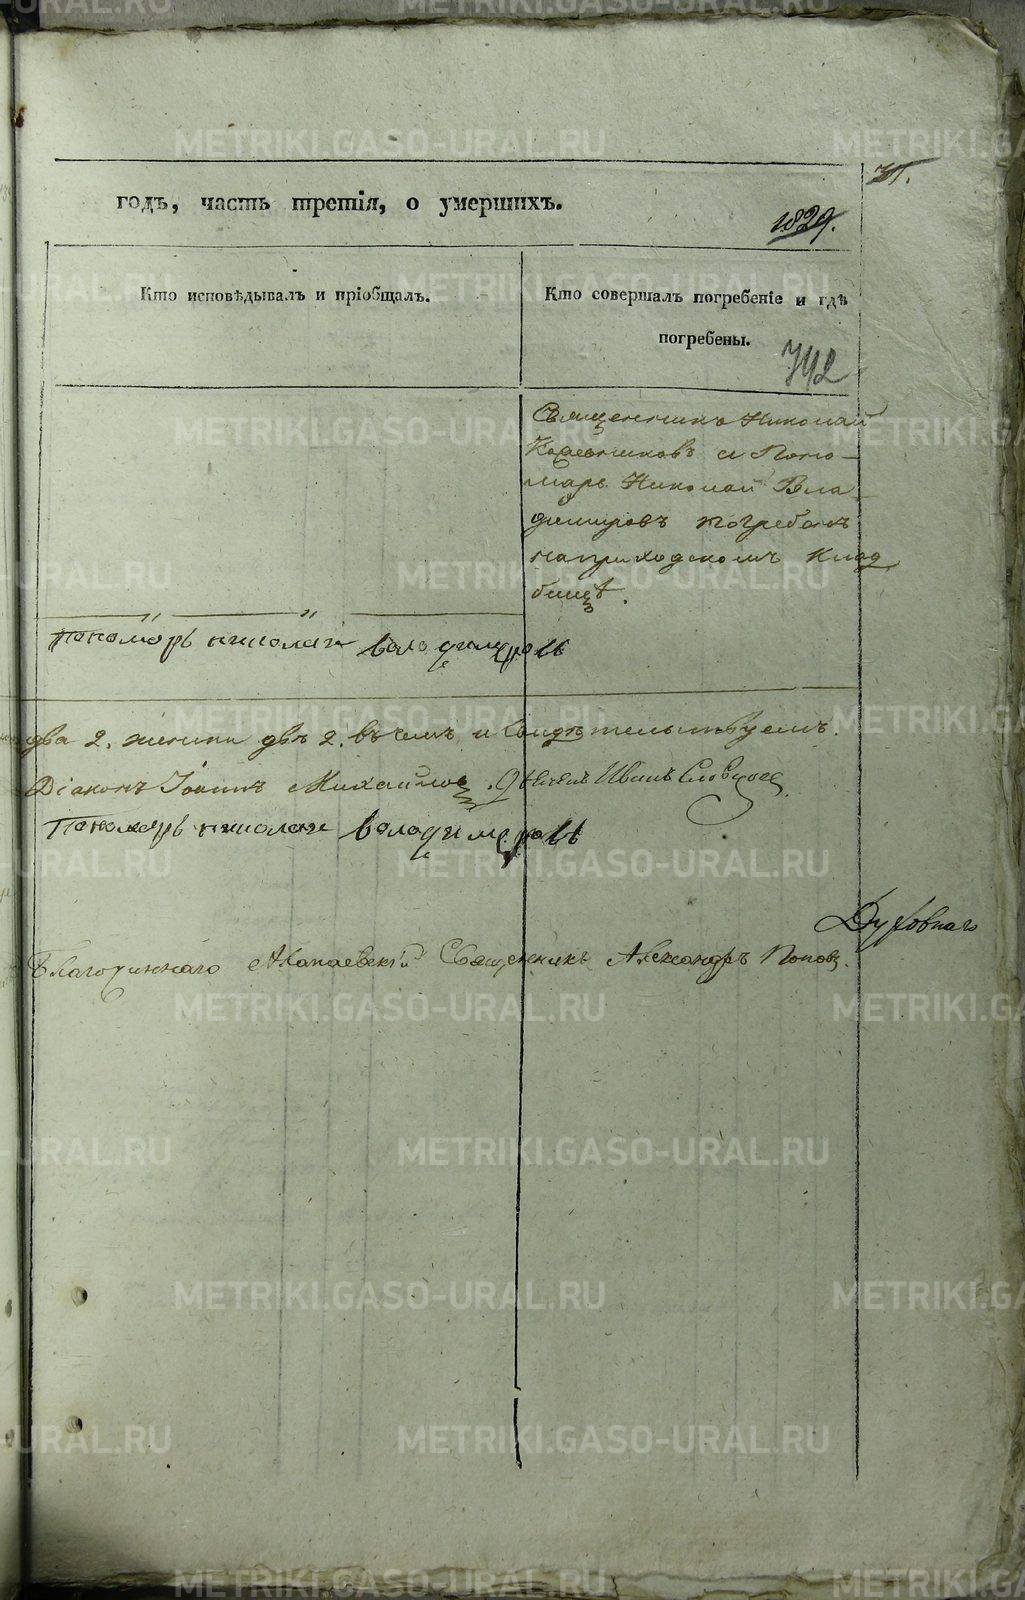 годъ, часть третія, о умершихъ.
1829.
Кто исповѣдывалъ и пріобщалъ.
Кто совершалъ погребеніе и гдѣ
погребены.
742
Священникъ Николай
и Поно-
марь Николай Вла-
димировъ погребенъ
на приходскомъ клад
бищѣ.
Пономарь николаи володимеровъ
два 2. женска двѣ 2. въ чемъ и свидѣтельствуемъ.
Діаконъ Іоаннъ Михайлов. Дьячекъ Иванъ Словцовъ
Пономарь николаи володимеровъ
Духовнаго
Благочиннаго Алапаевскій Священникъ Александръ Поповъ.
METRIKI.GASO-URAL.RU